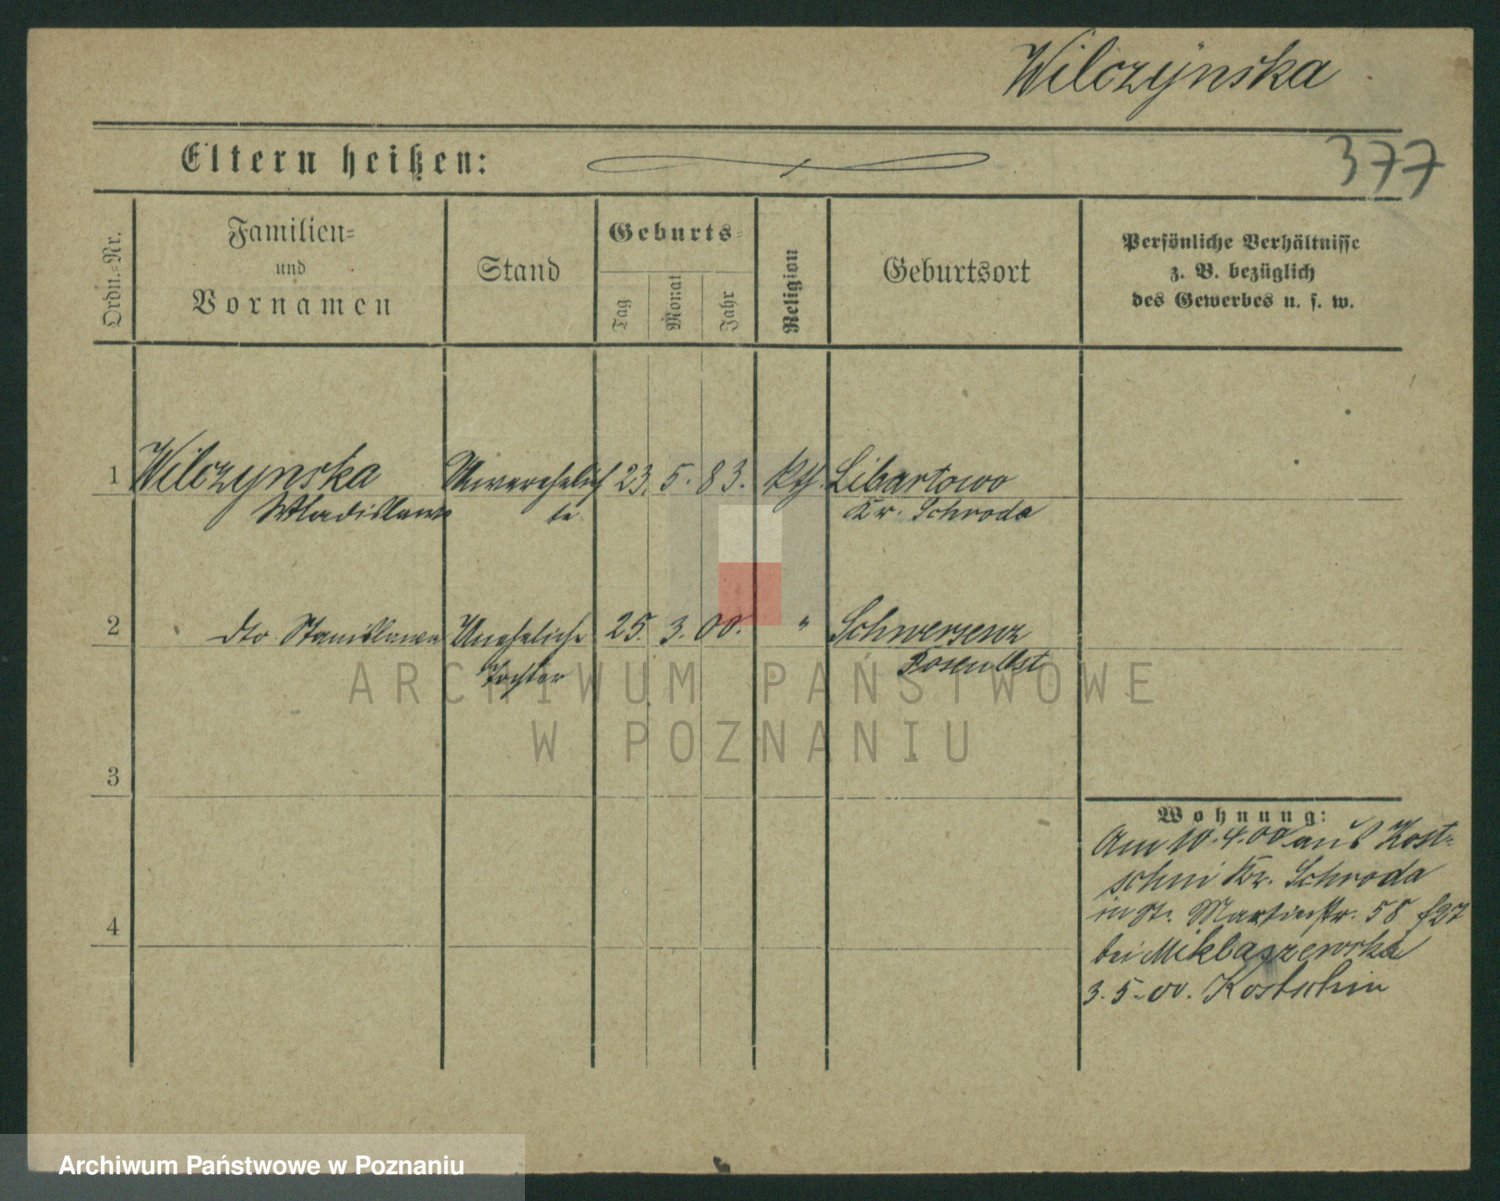 Wilczynska
377
Eltern heißen:
Ordn.-Nr.
Familien- und Vornamen
Stand
Geburts-
Tag
Monat
Jahr
Religion
Geburtsort
Persönliche Verhältnisse
z. B. bezüglich
des Gewerbes u. s. w.
1 Wilczynska Unverehelich 23. 5. 83. kth Libartowo
Wladislawa te Kr. Schroda
2 dto Stanislawa Uneheliche 25. 3. 00. " Schwersenz
Tochter Posen Ost
3
4
Wohnung:
Am 10.4.00 aus Kost-
schin Kr. Schroda
in St. Martinstr. 58
bei Miklaszewska
3.5.00. Kostschin
ARCHIWUM PAŃSTWOWE
W POZNANIU
Archiwum Państwowe w Poznaniu